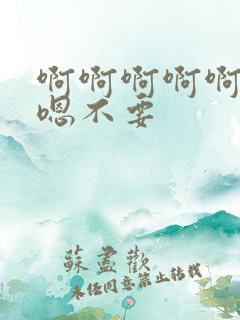 啊啊啊啊啊
嗯不要
蘇盡歡
未任同意禁止转载